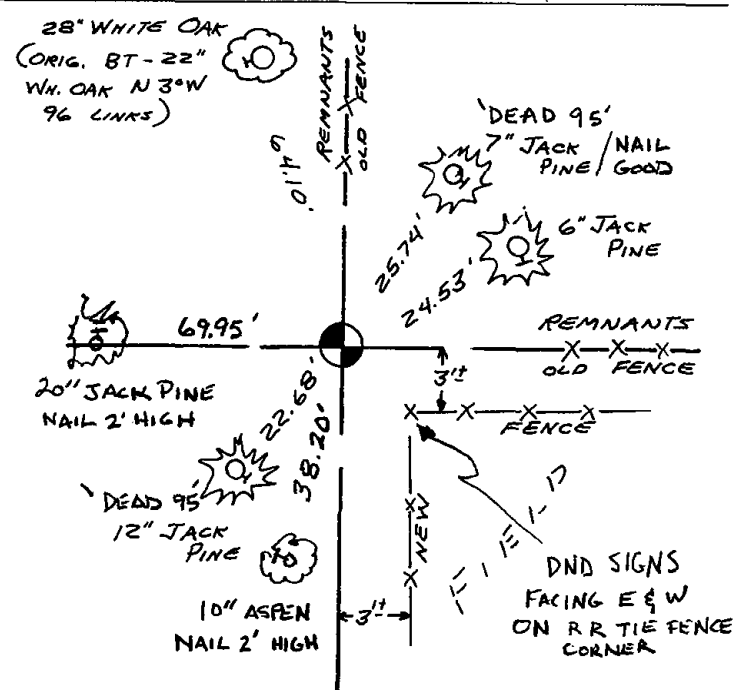 28" WHITE OAK
(ORIG. BT - 22"
WH. OAK N 3°W
96 LINKS)
REMNANTS
OLD FENCE
64.10'
'DEAD 95'
7" JACK
PINE / NAIL
GOOD
25.74'
6" JACK
PINE
24.53'
69.95'
REMNANTS
OLD FENCE
20" JACK PINE
NAIL 2' HIGH
3'±
FENCE
22.68'
38.20'
'DEAD 95'
12" JACK
PINE
NEW
FIELD
10" ASPEN
NAIL 2' HIGH
3'±
DND SIGNS
FACING E & W
ON RR TIE FENCE
CORNER